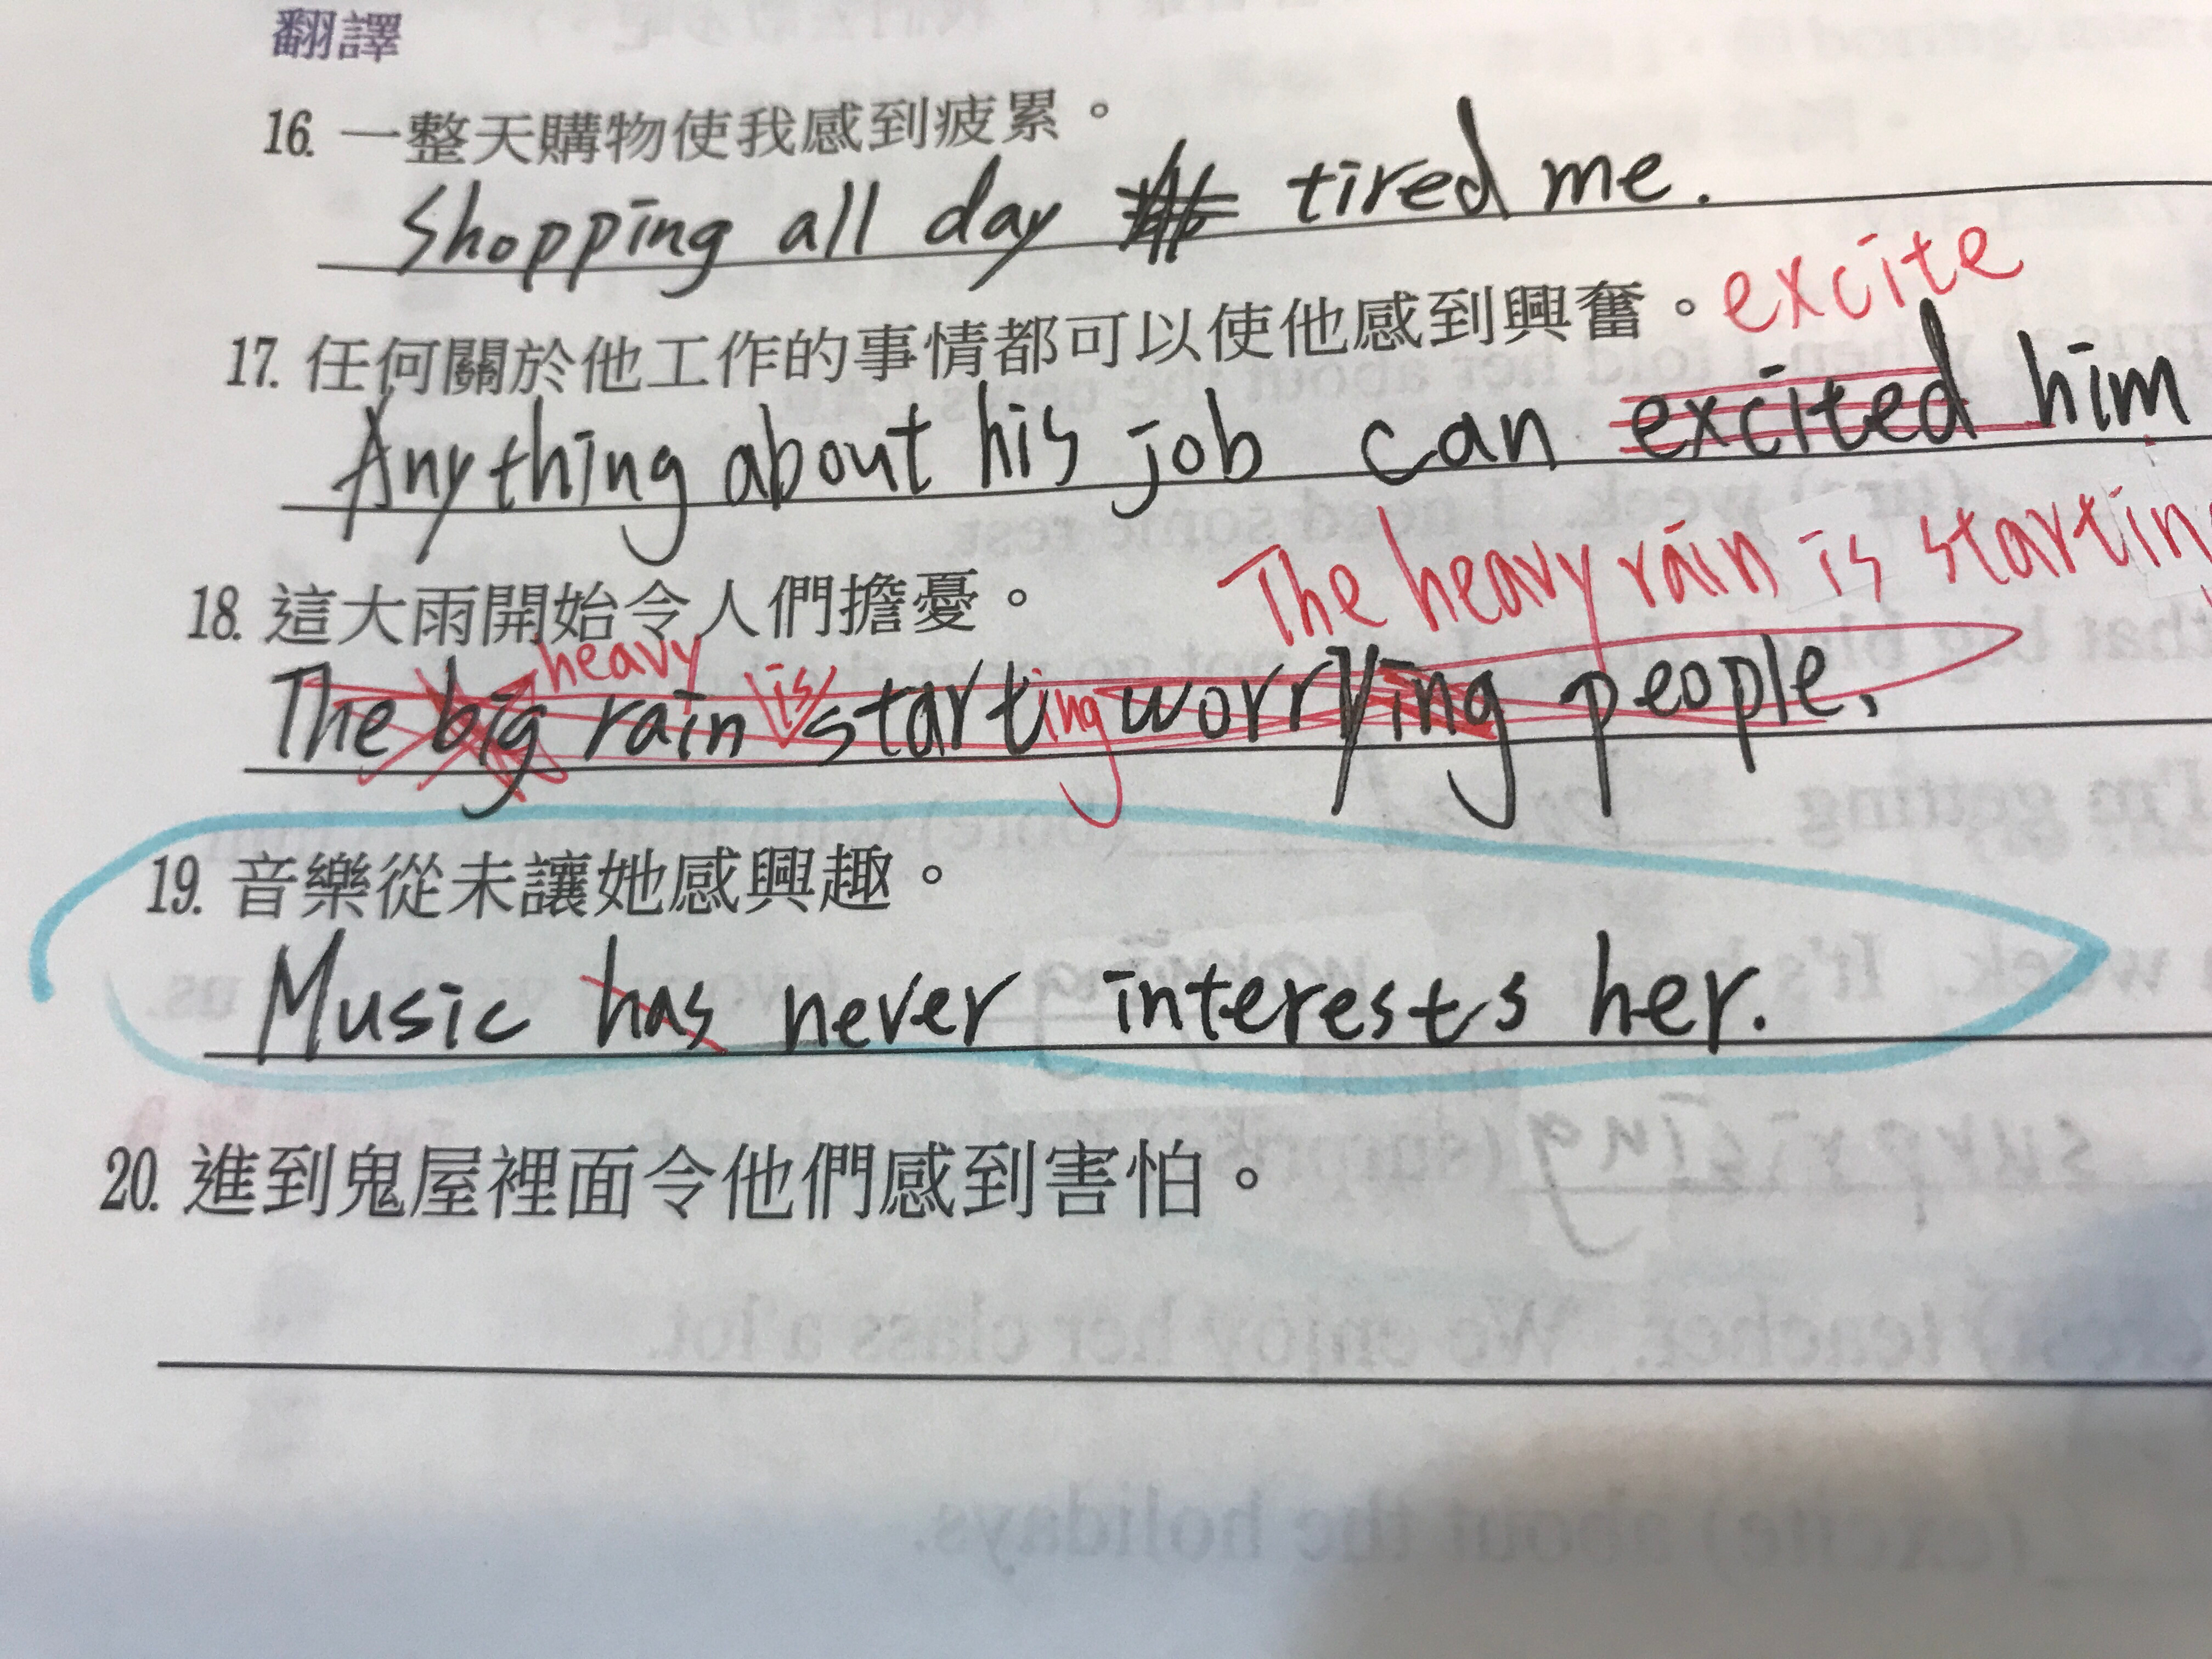 翻譯
16. 一整天購物使我感到疲累。
Shopping all day tired me.
17. 任何關於他工作的事情都可以使他感到興奮。 excite
Anything about his job can excited him
The heavy rain is startin
18. 這大雨開始令人們擔憂。
heavy is
The big rain starting worrying people.
19. 音樂從未讓她感興趣。
Music has never interests her.
20. 進到鬼屋裡面令他們感到害怕。